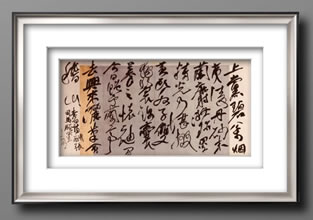 上黨碧松烟
夷陵丹砂末
蘭麝凝珍墨
精光乃堪掇
黄頭奴子雙
鴉鬟錦囊
養之懷袖間
今日贈予蘭亭
去興來灑筆會
稽山